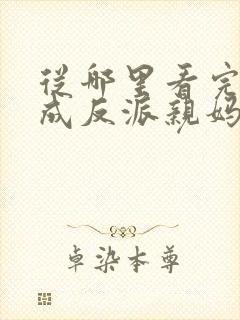 從哪里看完
成反派親媽
卓染本尊